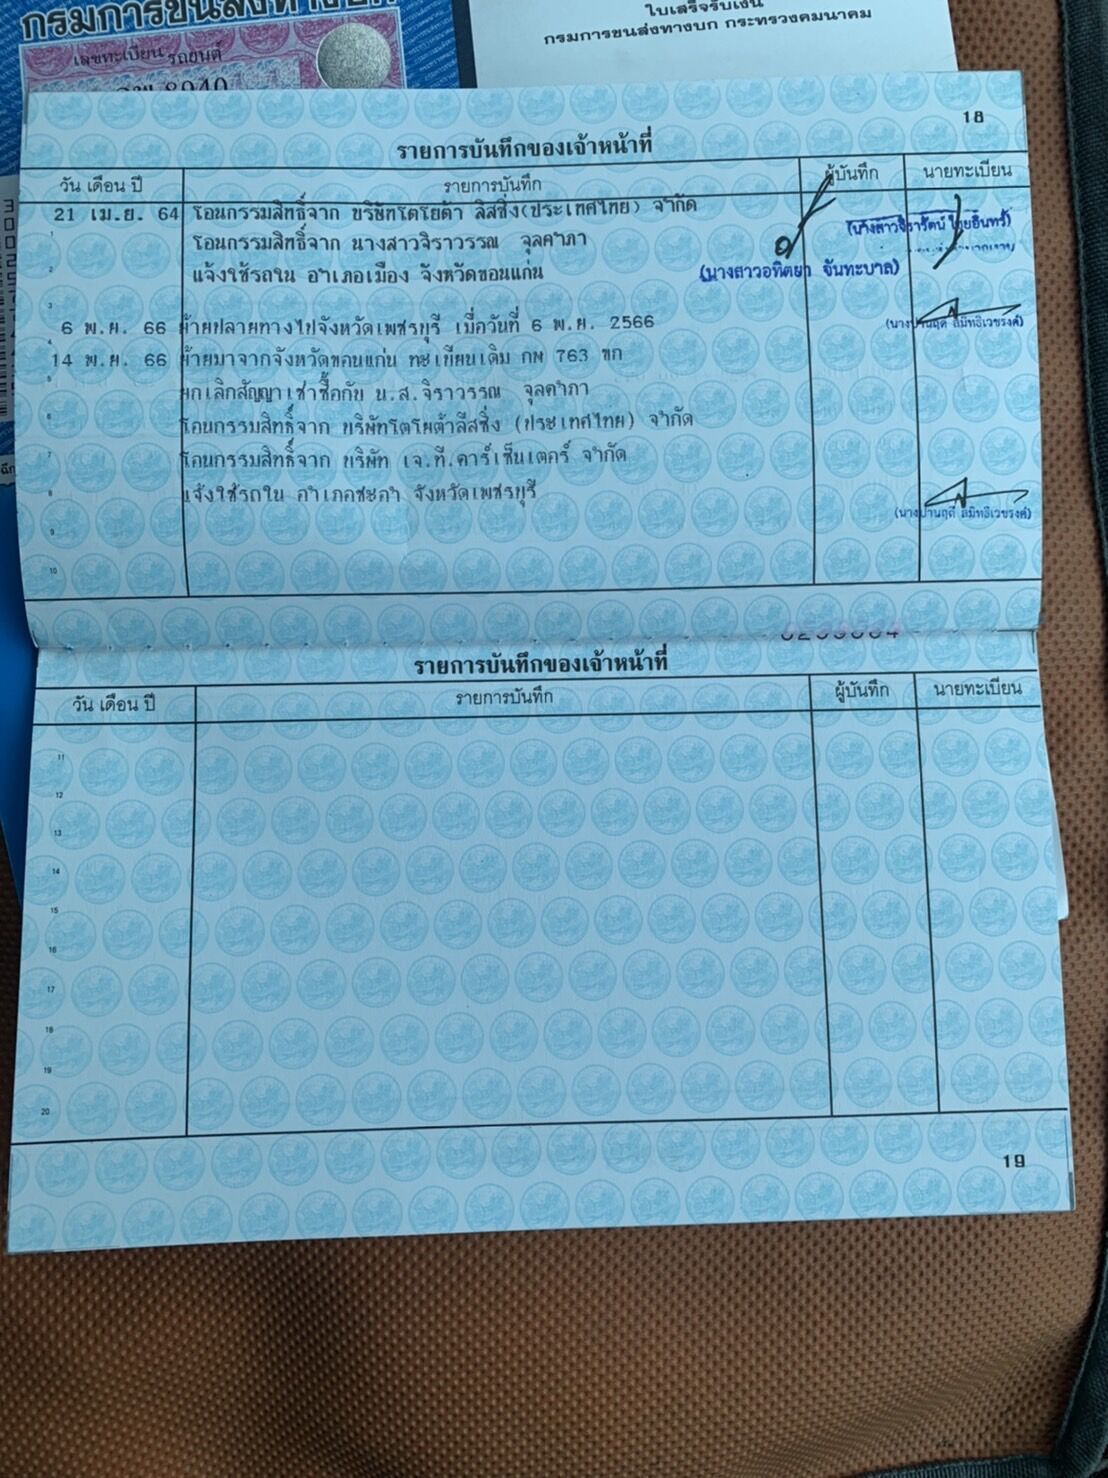 กรมการขนส่งทางบก
เลขทะเบียน รถยนต์
8940
ใบเสร็จรับเงิน
กรมการขนส่งทางบก กระทรวงคมนาคม
18
รายการบันทึกของเจ้าหน้าที่
วัน เดือน ปี รายการบันทึก ผู้บันทึก นายทะเบียน
21 เม.ย. 64 โอนกรรมสิทธิ์จาก บริษัทโตโยต้า ลิสซิ่ง(ประเทศไทย) จำกัด
1 โอนกรรมสิทธิ์จาก นางสาวจิราวรรณ จุลคำภา
2 แจ้งใช้รถใน อำเภอเมือง จังหวัดขอนแก่น (นางสาวอทิตยา จันทะบาล)
3
6 พ.ย. 66 ย้ายปลายทางไปจังหวัดเพชรบุรี เมื่อวันที่ 6 พ.ย. 2566
4
14 พ.ย. 66 ย้ายมาจากจังหวัดขอนแก่น ทะเบียนเดิม กพ 763 ขก
5 ยกเลิกสัญญาเช่าซื้อกับ น.ส.จิราวรรณ จุลคำภา
6 โอนกรรมสิทธิ์จาก บริษัทโตโยต้าลีสซิ่ง (ประเทศไทย) จำกัด
7 โอนกรรมสิทธิ์จาก บริษัท เจ.ที.คาร์เซ็นเตอร์ จำกัด
8 แจ้งใช้รถใน อำเภอชะอำ จังหวัดเพชรบุรี
9
10
รายการบันทึกของเจ้าหน้าที่
วัน เดือน ปี รายการบันทึก ผู้บันทึก นายทะเบียน
11
12
13
14
15
16
17
18
19
20
19